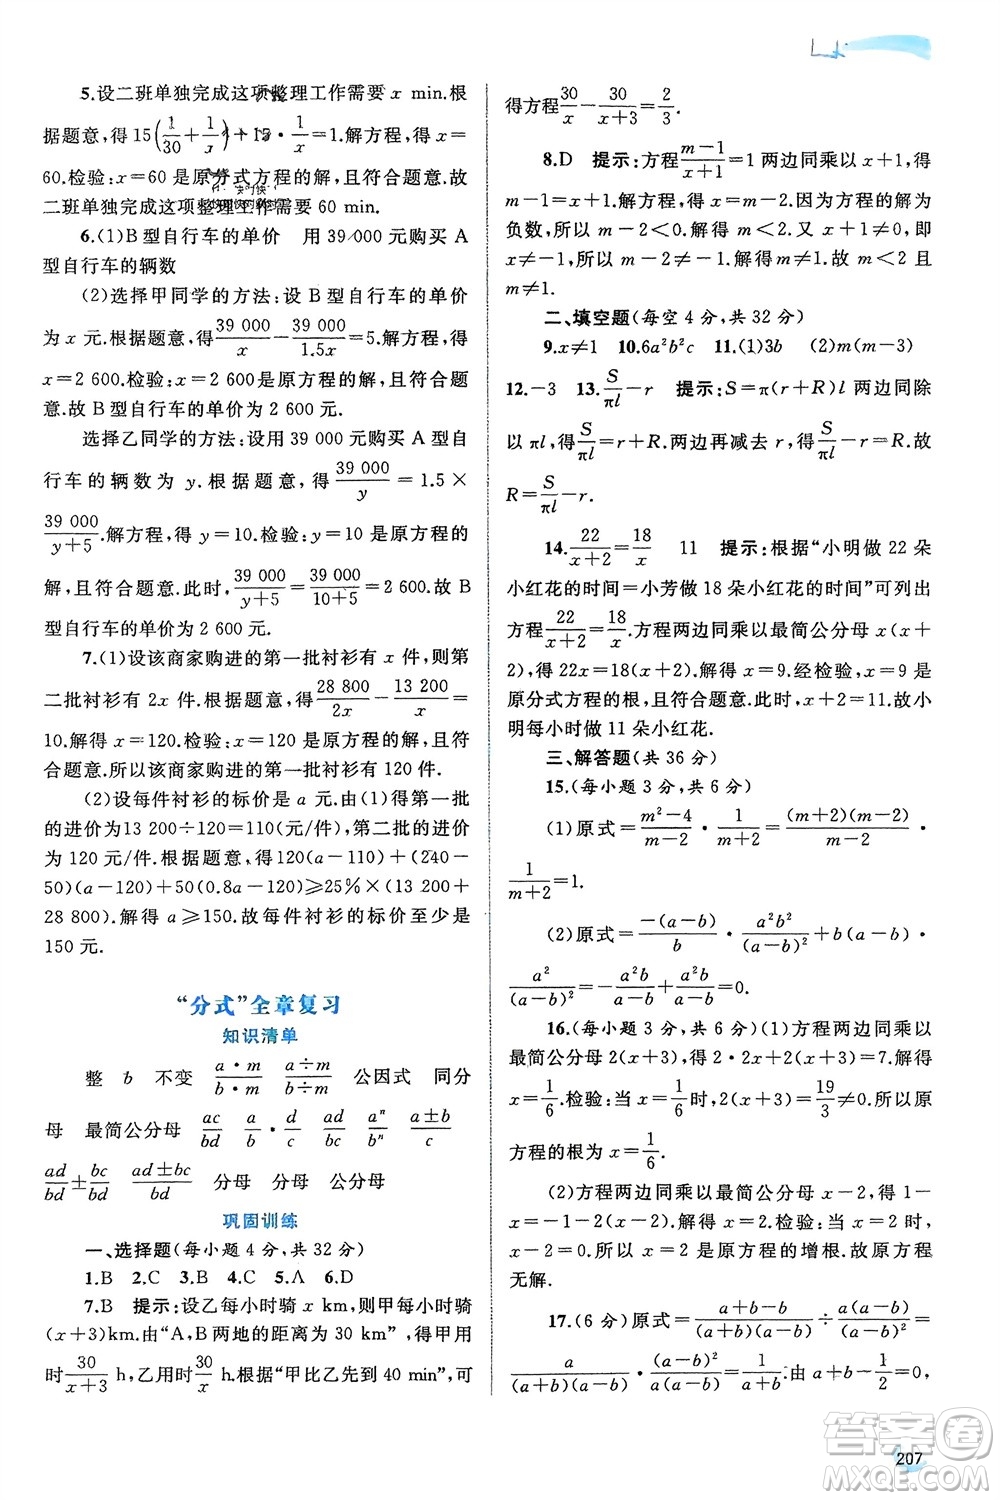 5.设二班单独完成这项整理工作需要 x min.根
据题意,得 15(1/30+1/x)+15·1/x=1.解方程,得 x=
60.检验:x=60 是原分式方程的解,且符合题意.故
二班单独完成这项整理工作需要 60 min.
6.(1)B 型自行车的单价 用 39 000 元购买 A
型自行车的辆数
(2)选择甲同学的方法:设 B 型自行车的单价
为 x 元.根据题意,得39 000/x-39 000/1.5x=5.解方程,得
x=2 600.检验:x=2 600 是原方程的解,且符合题
意.故 B 型自行车的单价为 2 600 元.
选择乙同学的方法:设用 39 000 元购买 A 型自
行车的辆数为 y.根据题意,得39 000/y=1.5×
39 000/(y+5).解方程,得 y=10.检验:y=10 是原方程的
解,且符合题意.此时,39 000/(y+5)=39 000/(10+5)=2 600.故B
型自行车的单价为 2 600 元.
7.(1)设该商家购进的第一批衬衫有 x 件,则第
二批衬衫有 2x 件.根据题意,得28 800/2x-13 200/x=
10.解得 x=120.检验:x=120 是原方程的解,且符合
题意.所以该商家购进的第一批衬衫有 120 件.
(2)设每件衬衫的标价是 a 元.由(1)得第一批
的进价为13 200÷120=110(元/件),第二批的进价
为 120 元/件.根据题意,得120(a-110)+(240-
50)(a-120)+50(0.8a-120)≥25%×(13 200+
28 800).解得 a≥150.故每件衬衫的标价至少是
150 元.
“分式”全章复习
知识清单
整 b 不变 a·m/b·m a÷m/b÷m 公因式 同分
母 最简公分母 ac/bd a/b·d/c ad/bc aⁿ/bⁿ a±b/c
ad/bd±bc/bd ad±bc/bd 分母 分母 公分母
巩固训练
一、选择题(每小题 4 分,共 32 分)
1.B 2.C 3.B 4.C 5.A 6.D
7.B 提示:设乙每小时骑 x km,则甲每小时骑
(x+3)km.由“A,B 两地的距离为 30 km”,得甲用
时30/(x+3) h,乙用时30/x h.根据“甲比乙先到 40 min”,可
得方程30/x-30/(x+3)=2/3.
8.D 提示:方程(m-1)/(x+1)=1 两边同乘以 x+1,得
m-1=x+1.解得 x=m-2.因为方程的解为
负数,所以 m-2<0.解得 m<2.又 x+1≠0,即
x≠-1,所以 m-2≠-1.解得 m≠1.故 m<2 且
m≠1.
二、填空题(每空 4 分,共 32 分)
9.x≠1 10.6a²b²c 11.(1)3b (2)m(m-3)
12.-3 13.S/πl-r 提示:S=π(r+R)l 两边同除
以 πl,得S/πl=r+R.两边再减去 r,得S/πl-r=R.故
R=S/πl-r.
14.22/(x+2)=18/x 11 提示:根据“小明做 22 朵
小红花的时间=小芳做 18 朵小红花的时间”可列出
方程22/(x+2)=18/x.方程两边同乘以最简公分母 x(x+
2),得 22x=18(x+2).解得 x=9.经检验,x=9 是
原分式方程的根,且符合题意.所以 x+2=11.故小
明每小时做 11 朵小红花.
三、解答题(共 36 分)
15.(每小题 3 分,共 6 分)
(1)原式=(m²-4)/(m-2)·1/(m+2)=(m+2)(m-2)/(m-2)·
1/(m+2)=1.
(2)原式=-(a-b)/b·a²b²/(a-b)²+b(a-b)·
a²/(a-b)²=-a²b/(a-b)+a²b/(a-b)=0.
16.(每小题 3 分,共 6 分)(1)方程两边同乘以
最简公分母 2(x+3),得 2·2x+2(x+3)=7.解得
x=1/6.检验:当 x=1/6时,2(x+3)=19/3≠0.所以原
方程的根为 x=1/6.
(2)方程两边同乘以最简公分母 x-2,得 1-
x=-1-2(x-2).解得 x=2.检验:当 x=2 时,
x-2=0.所以 x=2 是原方程的增根.故原方程
无解.
17.(6 分)原式=(a+b-b)/(a+b)(a-b)÷a/a(a-b)=
a/(a+b)(a-b)·a(a-b)/a=a/(a+b).由 a+b-1/2=0,
207
答案圈
MXQE.COM